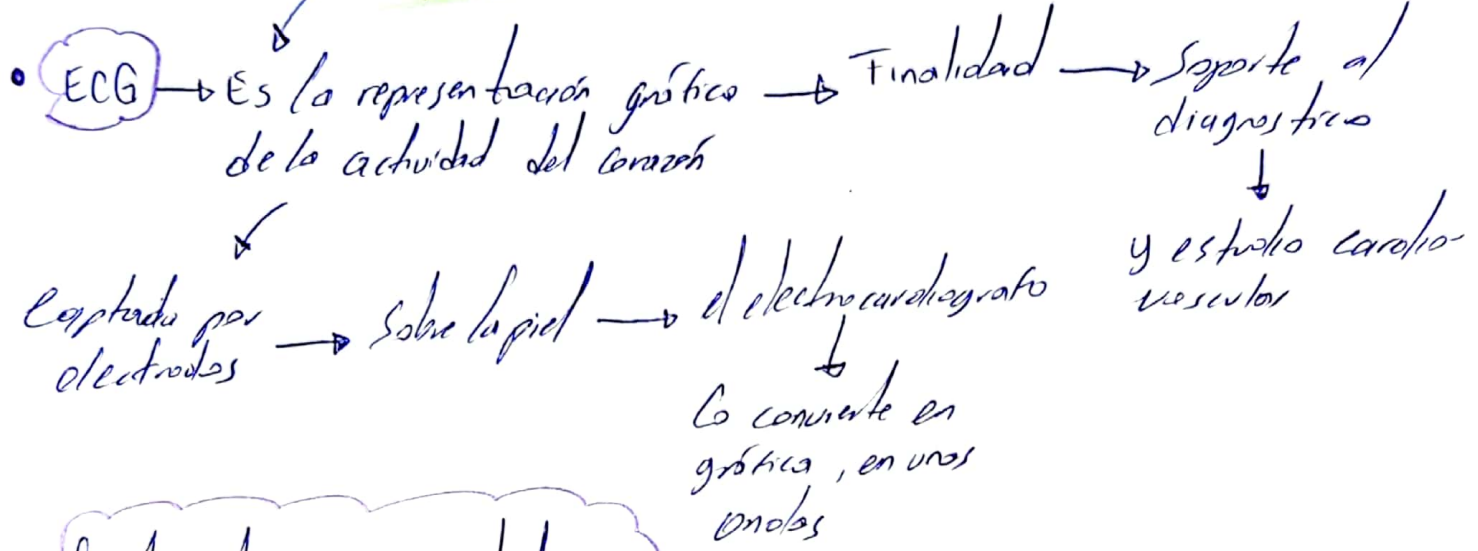 • ECG → Es la representación gráfica → Finalidad → Soporte al
de la actividad del corazón
diagnostico
y estudio cardio-
vascular
Captada por
electrodos → Sobre la piel → el electrocardiografo
Lo convierte en
gráfica, en unas
ondas